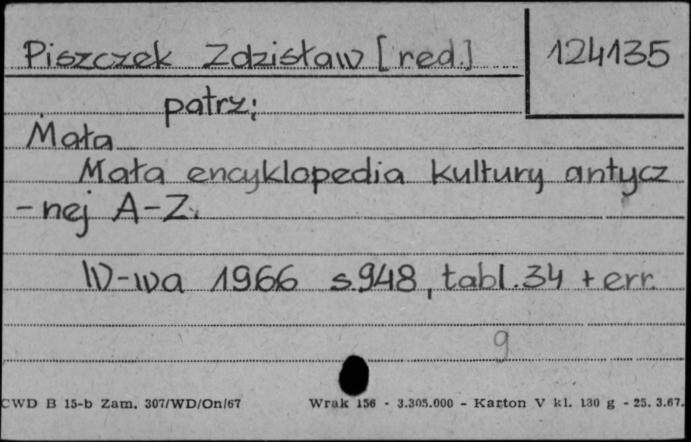 Piszczek Zdzisław [red.]
124135
patrz:
Mała
Mała encyklopedia kultury antycz
-nej A-Z.
W-wa 1966 s.948, tabl.34 + err.
9
CWD B 15-b Zam. 307/WD/On/67 Wrak 156 - 3.305.000 - Karton V kl. 130 g - 25. 3.67.